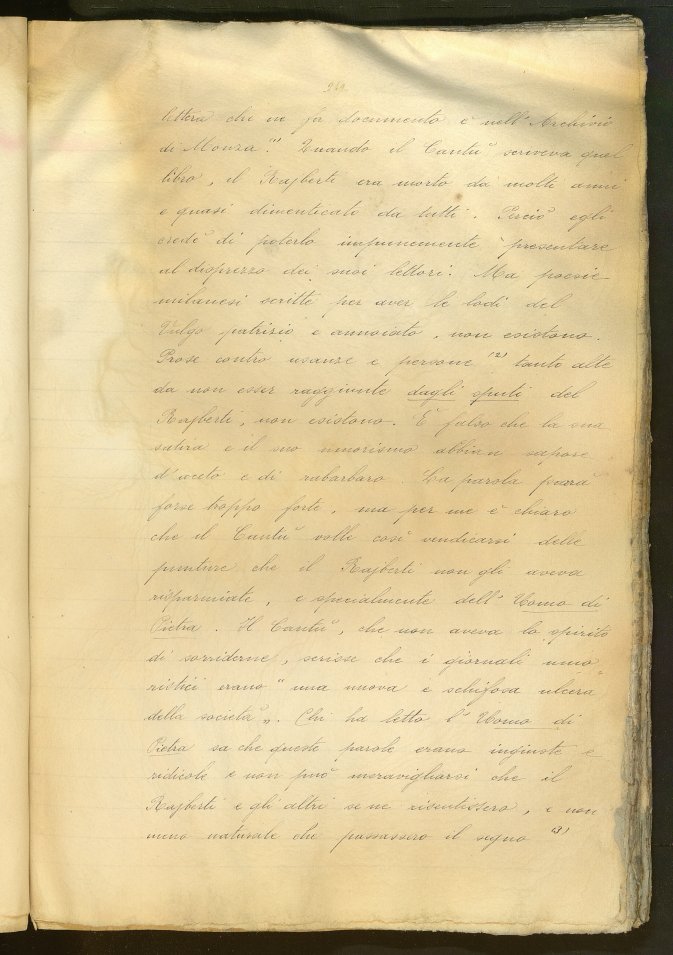 lettera che ne fa documento è nell' Archivio
di Monza (1) Quando il Cantù scriveva quel
libro, il Rajberti era morto da molti anni
e quasi dimenticato da tutti. Perciò egli
credè di poterlo impunemente presentare
al disprezzo dei suoi lettori. Ma poesie
milanesi scritte per aver le lodi del
Vulgo patrizio e annoiato, non esistono.
Prose contro usanze e persone (2) tanto alte
da non esser raggiunte dagli sputi del
Rajberti, non esistono. È falso che la sua
satira e il suo umorismo abbian sapore
d'aceto e di rabarbaro. La parola parrà
forse troppo forte, ma per me è chiaro
che il Cantù volle così vendicarsi delle
punture che il Rajberti non gli aveva
risparmiate, e specialmente dell' Uomo di
Pietra. Il Cantù, che non aveva lo spirito
di sorriderne, scrisse che i giornali umo
ristici erano "una nuova e schifosa ulcera
della società". Chi ha letto l' Uomo di
Pietra sa che queste parole erano ingiuste e
ridicole e non può meravigliarsi che il
Rajberti e gli altri se ne risentissero, e non
meno naturale che passassero il segno (3)